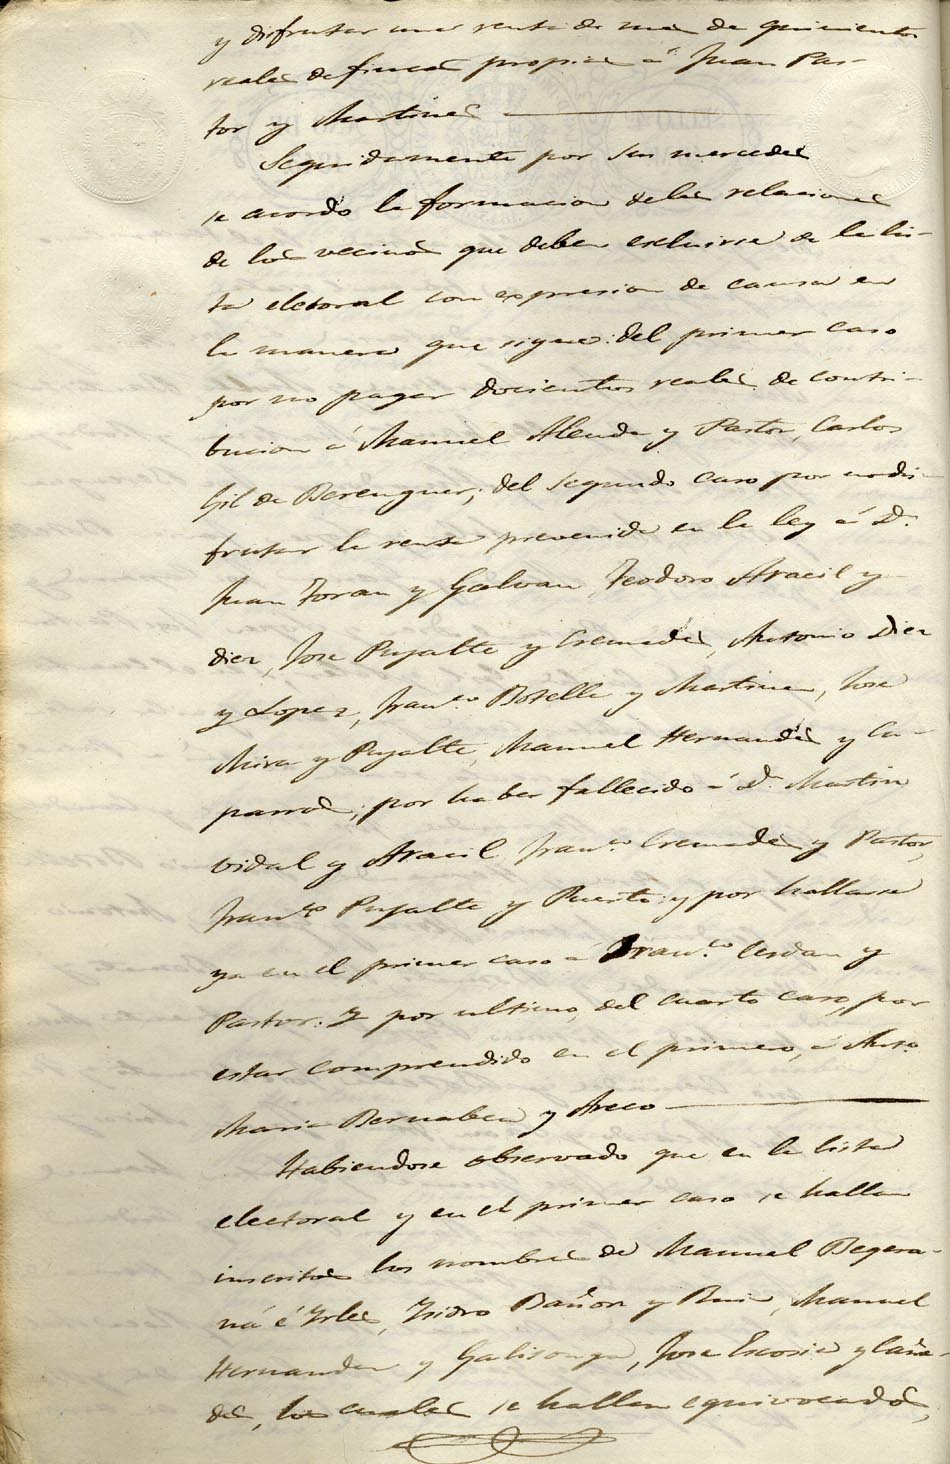 y disfrutar una renta de mas de quinientos
reales de fincas propias á Juan Pas-
tor y Martines
Seguidamente por sus mercedes
se acordó la formacion de las relaciones
de los vecinos que deben escluirse de la lis-
ta electoral con expresion de causa en
la manera que sigue: del primer caso
por no pagar docientos reales de contri-
bucion á Manuel Alenda y Pastor, Carlos
Gil de Berenguer; del segundo caso por no dis-
frutar la renta prevenida en la ley á D.
Juan Toran y Galvan, Teodoro Aracil y
diez, Jose Pujalte y Cremades, Antonio Diez
y Lopez, Franco. Botella y Martinez, Jose
Mira y Pujalte, Manuel Hernandes y Ca-
parros; por haber fallecido á D. Martin
vidal y Aracil, Franco. Cremades y Pastor,
Franco. Pujalte y Puerta; y por hallarse
ya en el primer caso á Franco. Cerdan y
Pastor. Y por ultimo, del cuarto caso, por
estar comprendido en el primero, á Anto.
Maria Bernabeu y Areco
Habiendose observado que en la lista
electoral y en el primer caso se hallan
inscritos los nombres de Manuel Begera-
ná é Yrles, Isidro Bañon y Ruiz, Manuel
Hernandez y Galisonga, Jose Escosia y Caña-
des, los cuales se hallan equivocados,